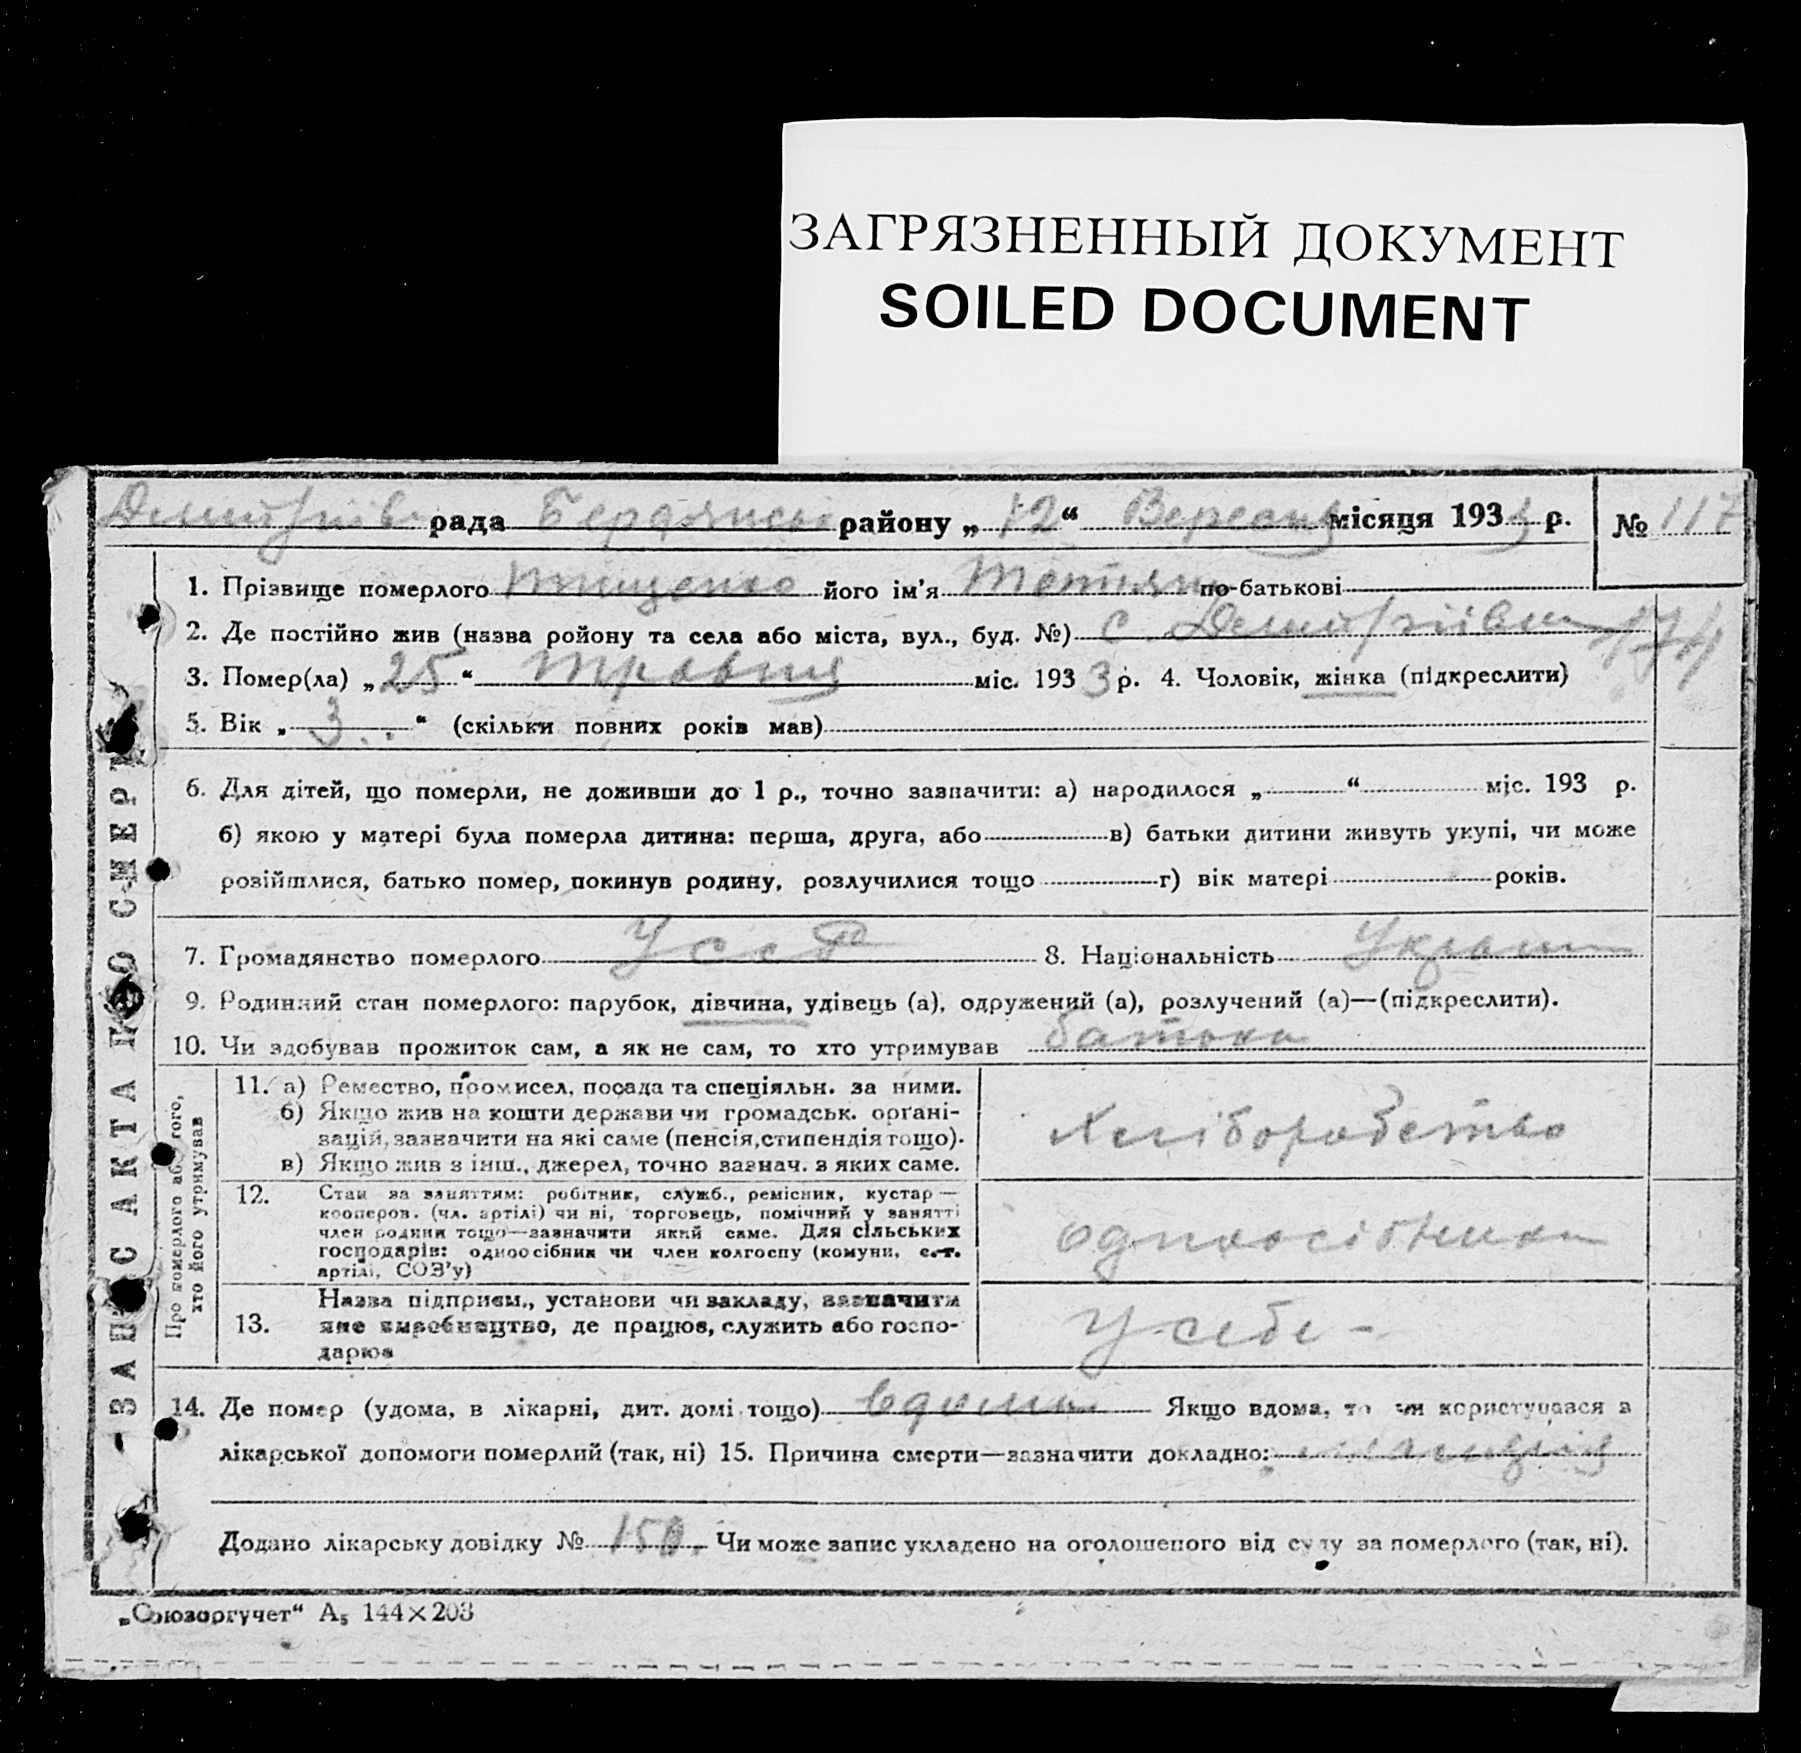 ЗАГРЯЗНЕННЫЙ ДОКУМЕНТ
SOILED DOCUMENT
рада районy „ 12 “ Вересня місяця 193 3 р. № 117
1. Прізвище померлого Тищенко його ім'я Тетяна по-батькові
2. Де постійно жив (назва ройону та села або міста, вул., буд. №) с. Дмитрівка 174
3. Помер(ла) „ 25 “ травня міс. 193 3 р. 4. Чоловік, жінка (підкреслити)
5. Вік „ 3 “ (скільки повних років мав)
6. Для дітей, що померли, не доживши до 1 р., точно зазначити: а) народилося „ “ міс. 193 р.
б) якою у матері була померла дитина: перша, друга, або в) батьки дитини живуть укупі, чи може
розійшлися, батько помер, покинув родину, розлучилися тощо г) вік матері років.
7. Громадянство померлого УССР 8. Національність
9. Родинний стан померлого: парубок, дівчина, удівець (а), одружений (а), розлучений (а)—(підкреслити).
10. Чи здобував прожиток сам, а як не сам, то хто утримував батьки
ЗАПИС АКТА ПРО СМЕРТЬ
Про померлого або того,
хто його утримував
11. а) Ремество, промисел, посада та спеціяльн. за ними.
б) Якщо жив на кошти держави чи громадськ. орґані-
зацій, зазначити на які саме (пенсія, стипендія тощо).
в) Якщо жив з інш., джерел, точно зазнач. з яких саме.
Хліборобство
12. Стан за заняттям: робітник, служб., ремісник, кустар —
кооперов. (чл. артілі) чи ні, торговець, помічний у занятті
член родини тощо—зазначити який саме. Для сільських
господарів: одноосібник чи член колгоспу (комуни, с.-г.
артілі, СОЗ'у)
одноосібник
13. Назва підприєм., установи чи закладу, зазначити
яке виробництво, де працює, служить або госпо-
дарює
У себе -
14. Де помер (удома, в лікарні, дит. домі тощо) вдома Якщо вдома, то чи користувався з
лікарської допомоги померлий (так, ні) 15. Причина смерти—зазначити докладно:
Додано лікарську довідку № 150. Чи може запис укладено на оголошеного від суду за померлого (так, ні).
„Союзоргучет“ А₅ 144×203